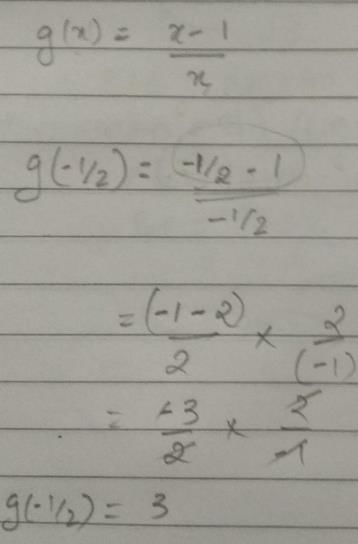 g(x) = x - 1 / x
g(-1/2) = -1/2 - 1 / -1/2
= (-1 - 2) / 2 × 2 / (-1)
= -3 / 2 × 2 / -1
g(-1/2) = 3